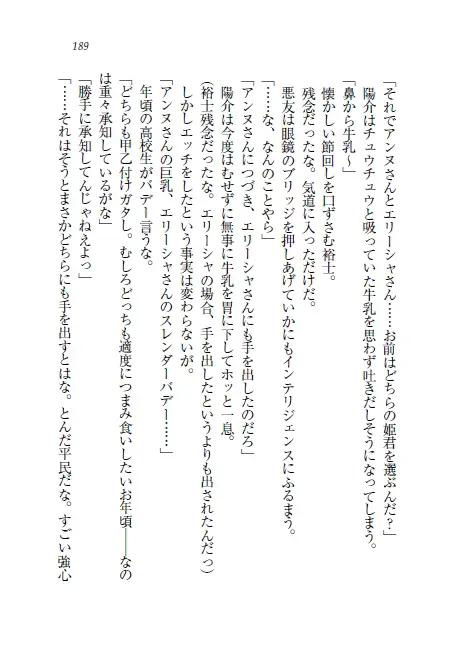 189
「それでアンヌさんとエリーシャさん……お前はどちらの姫君を選ぶんだ？」
陽介はチュウチュウと吸っていた牛乳を思わず吐きだしそうになってしまう。
「鼻から牛乳～」
懐かしい節回しを口ずさむ裕士。
残念だったな。気道に入っただけだ。
悪友は眼鏡のブリッジを押しあげていかにもインテリジェンスにふるまう。
「……な、なんのことやら」
「アンヌさんにつづき、エリーシャさんにも手を出したのだろ」
陽介は今度はむせずに無事に牛乳を胃に下してホッと一息。
(裕士残念だったな。エリーシャの場合、手を出したというよりも出されたんだっ)
しかしエッチをしたという事実は変わらないが。
「アンヌさんの巨乳、エリーシャさんのスレンダーバデー……」
年頃の高校生がバデー言うな。
「どちらも甲乙付けガタし。むしろどっちも適度につまみ食いしたいお年頃――なの
は重々承知しているがな」
「勝手に承知してんじゃねえよっ」
「……それはそうとまさかどちらにも手を出すとはな。とんだ平民だな。すごい強心